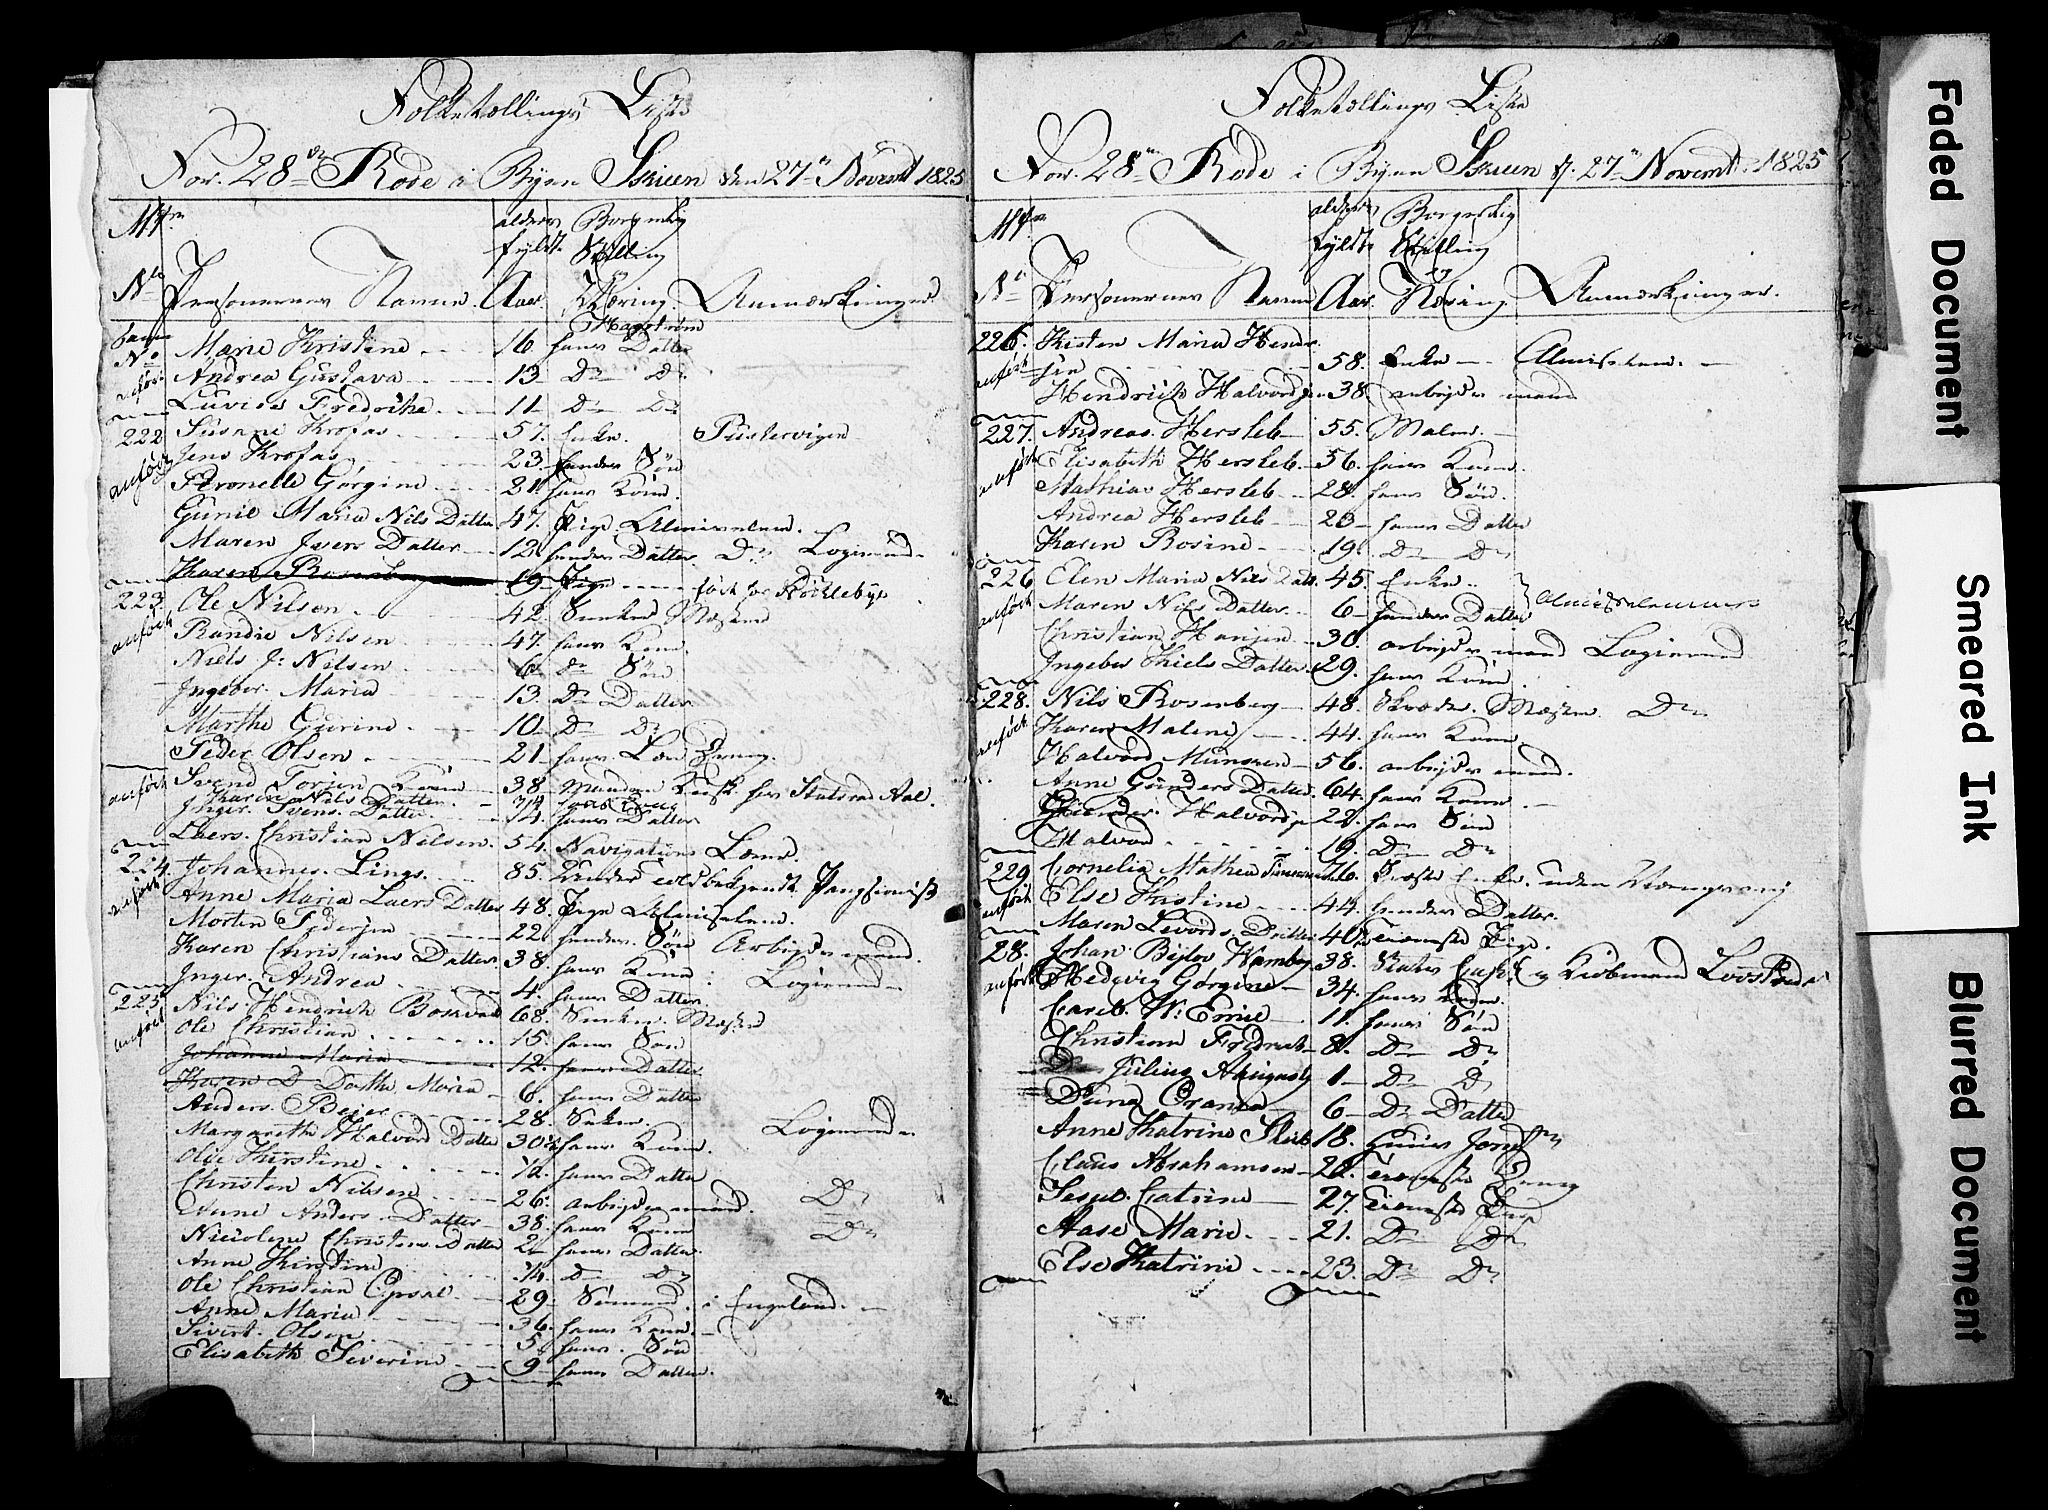 Folketællings Liste
For 28de Rode i Byen Skien den 27de Novembr 1825
Mtr
No
Personernes Navne
alders fyldte Aar
Borgerlig Stilling Næring
Anmærkninger
Samme No
Marie Kristine 16 hans Datter
Andrea Gustava 13 Do Do
Luvise Fredrike 11 Do Do
222 Susane Krofas 57. Enke. Pustervigen
anført
Jens Krofas 23. hendes Søn
Peronelle Gørgine 21 hans Kone.
Gunil Maria Nils Datter 47. Pige. Almisselem.
Maren Jvers Datter 12 hendes Datter. Do Logerende
Karen Rosenberg 19 Pige
223. Ole Nilsen 42. Snekker Mester
anført
Randie Nilsen 47. hans Kone.
Niels J: Nilsen 6 do Søn
Jngebor. Maria 13. Do Datter
Marthe Gurine 10. Do Do
Peder Olsen 21 hans Lære Dreng.
anført
Svend Torsen 38 Kusk hos Statsraad Aal.
Karen Nils Datter 34 hans Kone
Jnger. Svens. Datter 14. hans Datter
Laers. Christian Nilsen. 54. Navigations Lærer.
224. Johannes. Lings. 85.
anført
Anne Maria Laers Datter 48. Pige Almisselem.
Morten Pedersen 22. hendes. Søn Arbejdsmand.
Karen Christians Datter. 38. hans Kone Logerende
Jnger. Andrea 4. hans Datter
225 Nils. Hendrich 68. Snekker. Mester
anført
Ole Christian 15. hans Søn
Johanne Maria 12. hans Datter
Karen D Dorthe Maria 6. hans Datter
Anders. Bejer 28. Snekker. Logerende
Margarethe Halvord Datter 30 hans Kone.
Olie Kirstine 12 hans Datter
Christen Nilssen 26. arbejdsmand. Do
Anne Anders. Datter 38. hans Kone Do
Nicoline Christens Datter 2 hans Datter.
Anne Kirstine 14. Do Do
Ole Christian 29. Sømand. i Engeland.
Anne Maria 36. hans Kone.
Sivert. Olsen 5. hans. Søn
Elisabeth Severine 9 hans Datter.
Folketællings Liste
For 28de Rode i Byen Skien d. 27de Novembr 1825
Mtr
No
Personernes Navne
alders fyldte Aar.
Borgerlig Stilling og Næring.
Anmærkninger.
226. Kisten Maria Hendr
anført
sen 58. Enke Almisselem.
Hendrich Halvordsen 38. arbejdsmand
227. Andreas. Hersleb 55. Maler.
anført
Elisabeth Hersleb. 56. hans Kone.
Mathias Hersleb 28. hans Søn.
Andrea Hersleb 23 hans Datter
Karen Rosine 19. Do Do
226 Elen Maria Nils Datt. 45. Enke. Almisselemmer
anført
Maren Nils Datter 6 hendes Datter
Christian Hansen 30. arbejdsmand Logerende
Jngebor Niels Datter 29. hans Kone
228. Nils Rosenberg 48. Skreder. Mester. Do
anført
Karen Malene 44. hans Kone.
Halvord Munsen 56. arbejdsmand.
Anne Gunders Datter. 64. hans Kone.
Gunder. Halvords 22 hans Søn
Halvord 19. Do Do
229 Cornelia Mathea 76. Enke. uden Næringsvej
anført
Else Kistine 44. hendes Datter.
Maren Levords. Datter 40 Tieneste Pige.
28. Johan Bejlov 38. og Kiøbmand
anført
Hedevig Gørgine 34. hans Kone.
Carel. W: Emil 11. hans Søn
Christian Fredrich 8. Do Do
Julius Augusty 1 Do Do
6 Do Datter
Anne Katrine 18. Huus Jomfru
Claus Abrahamsen 22. Tieneste Dreng
Catrine 27. Tieneste Pige
Aase Marie. 21. Do Do
Else Katrine 23. Do Do
Faded Document
Smeared Ink
Blurred Document